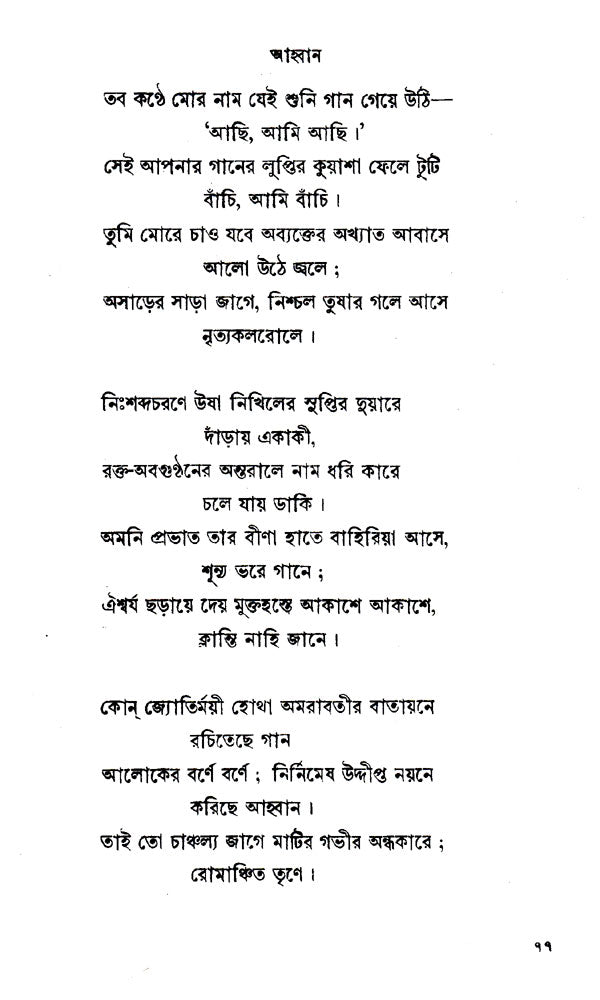 আহ্বান
তব কণ্ঠে মোর নাম যেই শুনি গান গেয়ে উঠি—
‘আছি, আমি আছি।’
সেই আপনার গানের লুপ্তির কুয়াশা ফেলে টুটি
বাঁচি, আমি বাঁচি।
তুমি মোরে চাও যবে অব্যক্তের অখ্যাত আবাসে
আলো উঠে জ্বলে;
অসাড়ের সাড়া জাগে, নিশ্চল তুষার গলে আসে
নৃত্যকলরোলে।
নিঃশব্দচরণে উষা নিখিলের সুপ্তির দুয়ারে
দাঁড়ায় একাকী,
রক্ত-অবগুণ্ঠনের অন্তরালে নাম ধরি কারে
চলে যায় ডাকি।
অমনি প্রভাত তার বীণা হাতে বাহিরিয়া আসে,
শূন্য ভরে গানে;
ঐশ্বর্য ছড়ায়ে দেয় মুক্তহস্তে আকাশে আকাশে,
ক্লান্তি নাহি জানে।
কোন্ জ্যোতির্ময়ী হোথা অমরাবতীর বাতায়নে
রচিতেছে গান
আলোকের বর্ণে বর্ণে; নির্নিমেষ উদ্দীপ্ত নয়নে
করিছে আহ্বান।
তাই তো চাঞ্চল্য জাগে মাটির গভীর অন্ধকারে;
রোমাঞ্চিত তৃণে।
৭৭